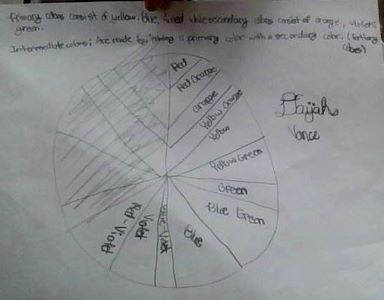 Primary colors consist of yellow, Blue, & red while secondary colors consist of orange, violet,
green.
Intermediate colors; Are made by mixing a primary color with a secondary color. (Tertiary
Colors)
Red
Red Orange
Orange
Yellow Orange
Yellow
Yellow Green
Green
Blue Green
Blue
Blue-Violet
Violet
Red-Violet
Vance